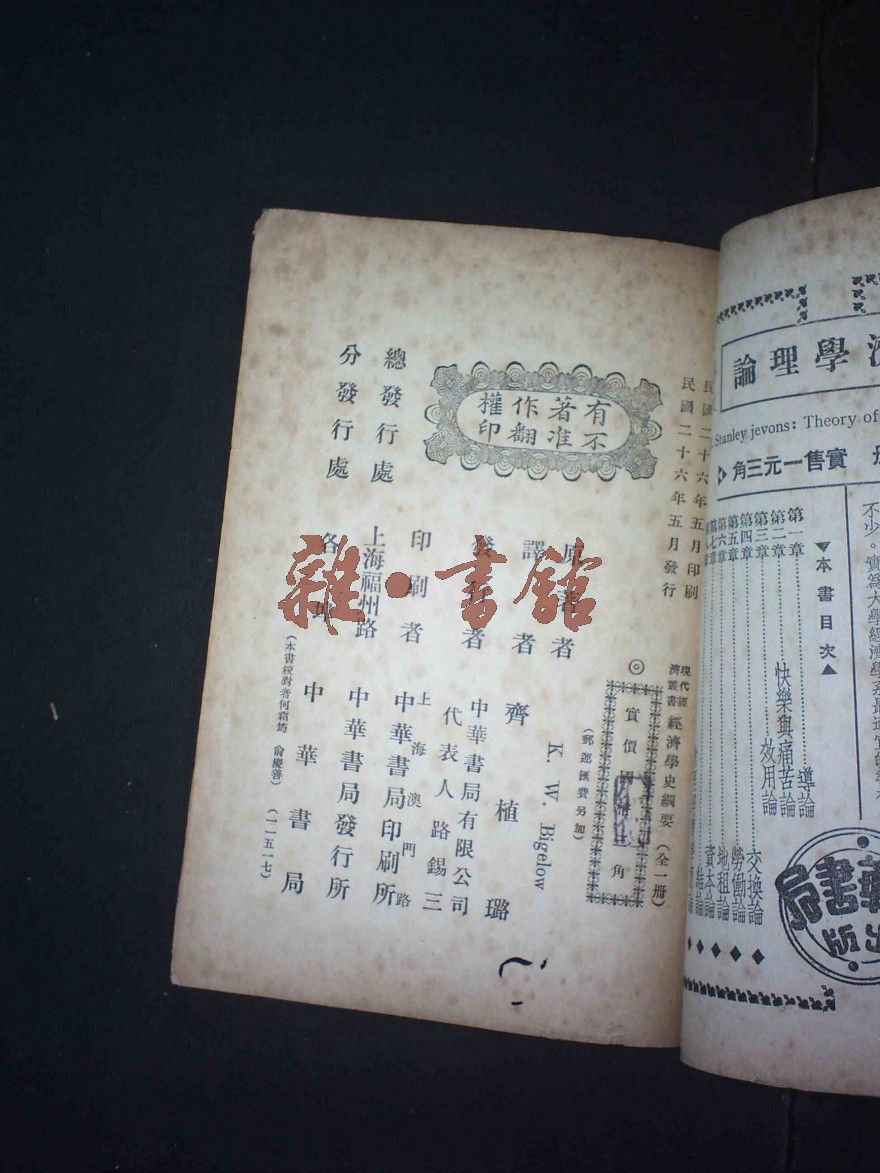 民國二十六年五月印刷
民國二十六年五月發行
有著作權
不准翻印
現代經濟叢書 經濟學史綱要(全一冊)
◎
實價國幣 角
(郵運匯費另加)
原著者 K. W. Bigelow
譯者 齊植璐
發行者 中華書局有限公司
代表人 路錫三
印刷者 上海澳門路
中華書局印刷所
總發行處 上海福州路 中華書局發行所
分發行處 各埠 中華書局
(本書校對者何霜筠 俞慶善)(一一五一七)
雜·書館
論理學濟
Stanley jevons: Theory of
實售一元三角
▼本書目次▲
第一章 導論
第二章 快樂與痛苦論
第三章 效用論
第四章 交換論
第五章 勞働論
第六章 地租論
資本論
結論
不少。實為大學經濟學系最適宜的
華書局
出版